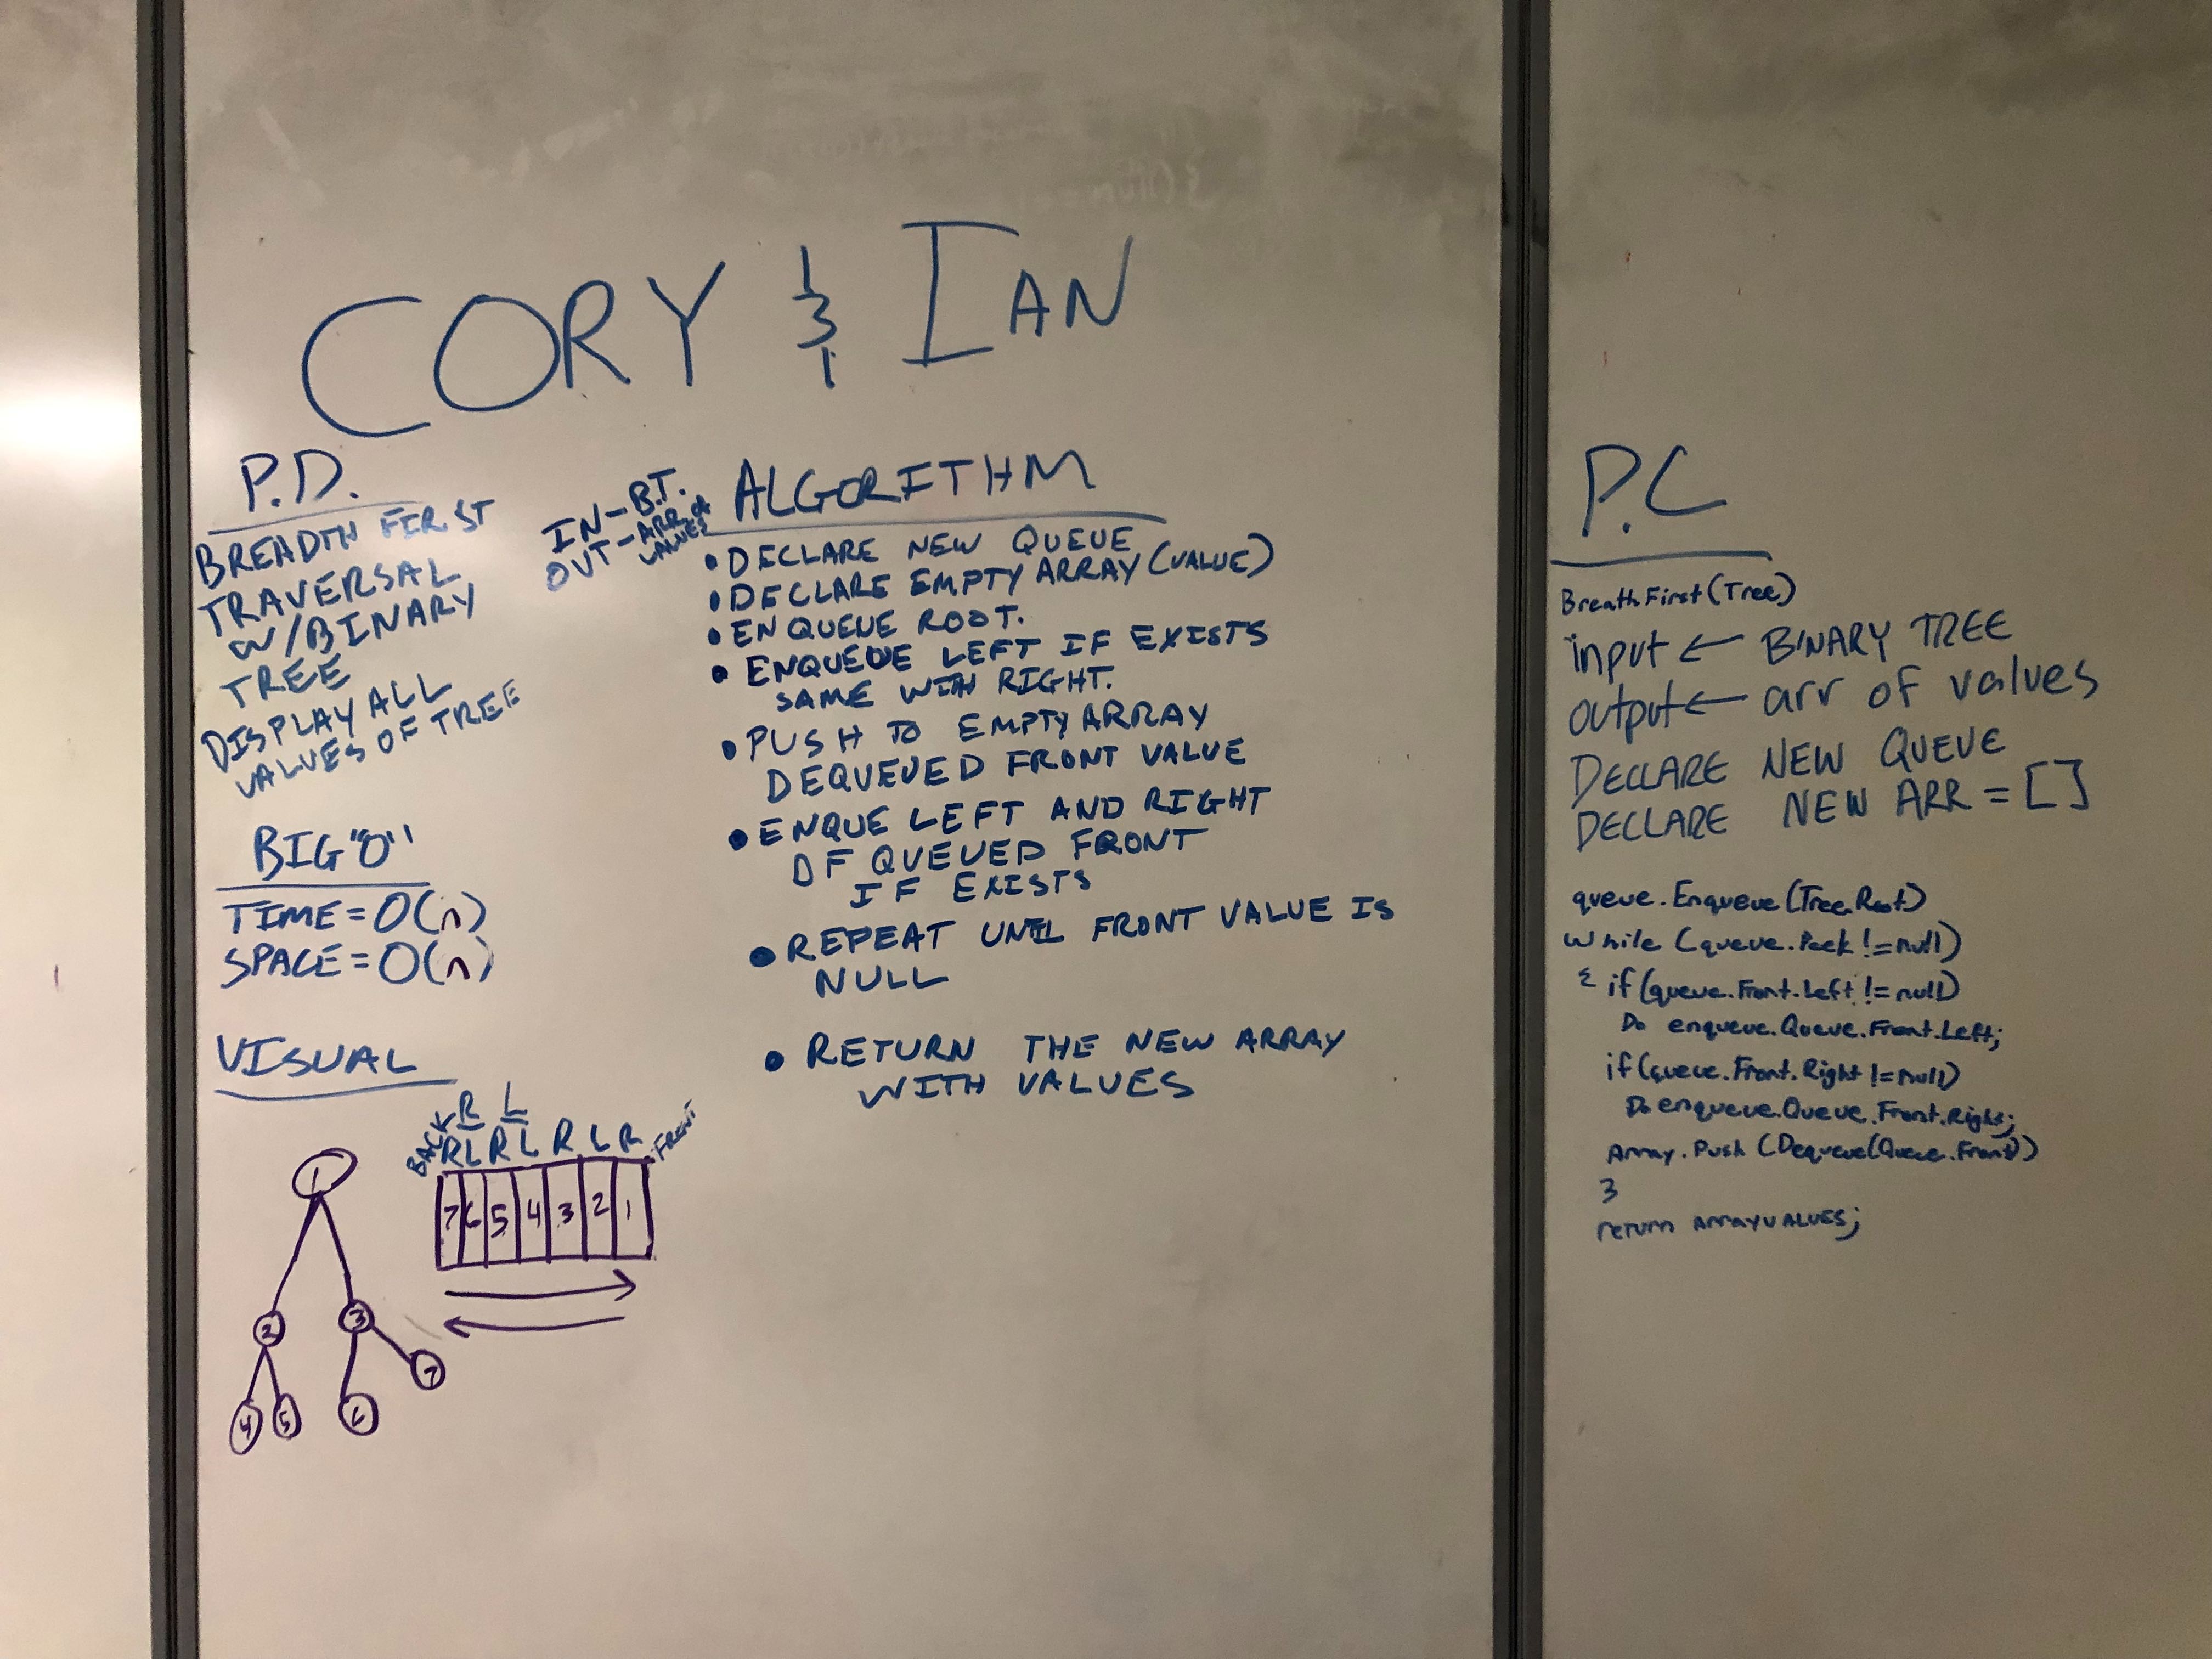 CORY & IAN
P.D.
BREADTH FIRST
TRAVERSAL
W/BINARY
TREE
DISPLAY ALL
VALUES OF TREE
IN-B.T.
OUT-ARR of
VALUES
BIG "O"
TIME = O(n)
SPACE = O(n)
VISUAL
BACK R L
R L R L R L R FRONT
7 6 5 4 3 2 1
1
2 3
4 5 6 7
ALGORITHM
• DECLARE NEW QUEUE
• DECLARE EMPTY ARRAY (VALUE)
• ENQUEUE ROOT.
• ENQUEUE LEFT IF EXISTS
SAME WITH RIGHT.
• PUSH TO EMPTY ARRAY
DEQUEUED FRONT VALUE
• ENQUE LEFT AND RIGHT
OF QUEUED FRONT
IF EXISTS
• REPEAT UNTIL FRONT VALUE IS
NULL
• RETURN THE NEW ARRAY
WITH VALUES
P.C
BreathFirst(Tree)
input ← BINARY TREE
output ← arr of values
DECLARE NEW QUEUE
DECLARE NEW ARR = []
queue.Enqueue(Tree.Root)
while (queue.Peek != null)
{ if (queue.Front.Left != null)
Do enqueue.Queue.Front.Left;
if (queue.Front.Right != null)
Do enqueue.Queue.Front.Right;
Array.Push (Dequeue(Queue.Front))
}
return ArrayVALUES;